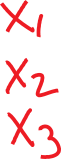 X1
X2
X3